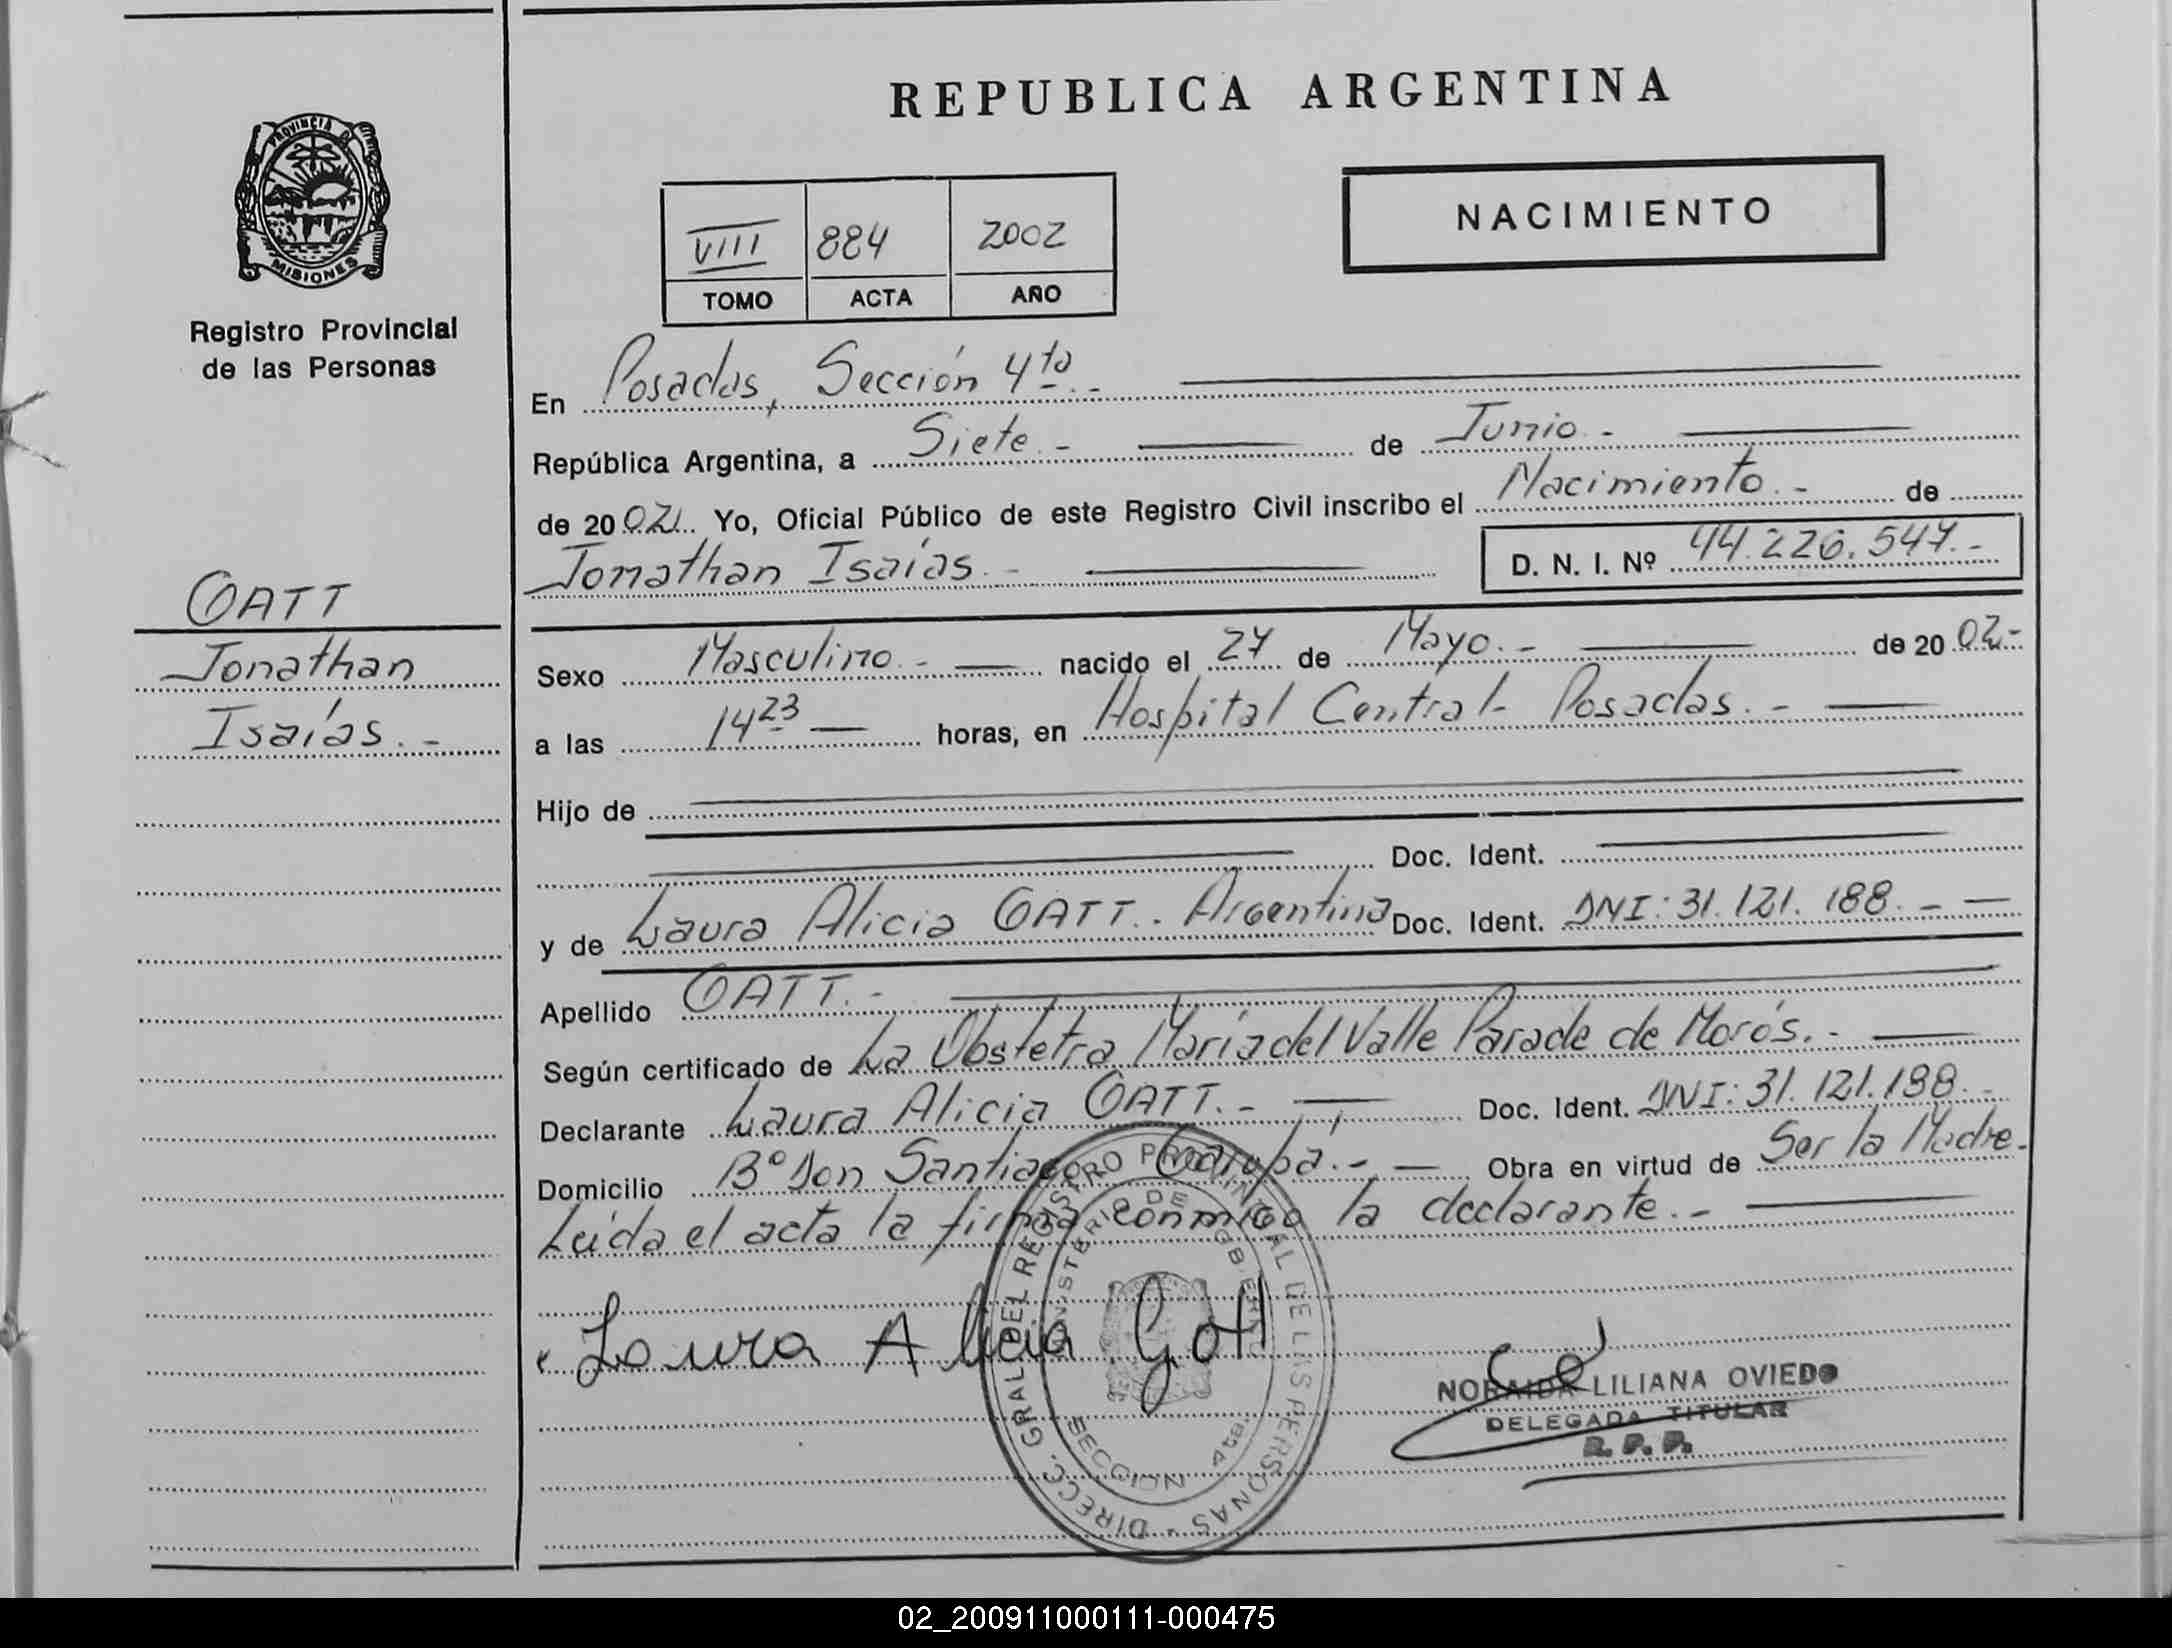 REPUBLICA ARGENTINA
PROVINCIA DE
MISIONES
Registro Provincial
de las Personas
NACIMIENTO
VIII 884 2002
TOMO ACTA AÑO
En Posadas, Sección 4ta.-
República Argentina, a Siete.- de Junio.-
de 2002. Yo, Oficial Público de este Registro Civil inscribo el Nacimiento.- de
Jonathan Isaías.- D. N. I. Nº 44.226.547.-
GATT
Jonathan
Isaías.-
Sexo Masculino.- nacido el 27 de Mayo.- de 2002.-
a las 14 23 horas, en Hospital Central- Posadas.-
Hijo de
Doc. Ident.
y de Laura Alicia GATT. Argentina Doc. Ident. DNI: 31.121.188.-
Apellido GATT.-
Según certificado de La Obstetra María del Valle Parade de Morós.-
Declarante Laura Alicia GATT.- Doc. Ident. DNI: 31.121.188.-
Domicilio Bº Don Santiago Garupá.- Obra en virtud de Ser la Madre.
Leída el acta la firma conmigo la declarante.-
Laura Alicia Gatt
DIRECC. GRAL. DEL REGISTRO PROVINCIAL DE LAS PERSONAS
MINISTERIO DE GOBIERNO
SECCION 4ta.
NORAIDA LILIANA OVIEDO
DELEGADA TITULAR
R. P. P.
02_200911000111-000475